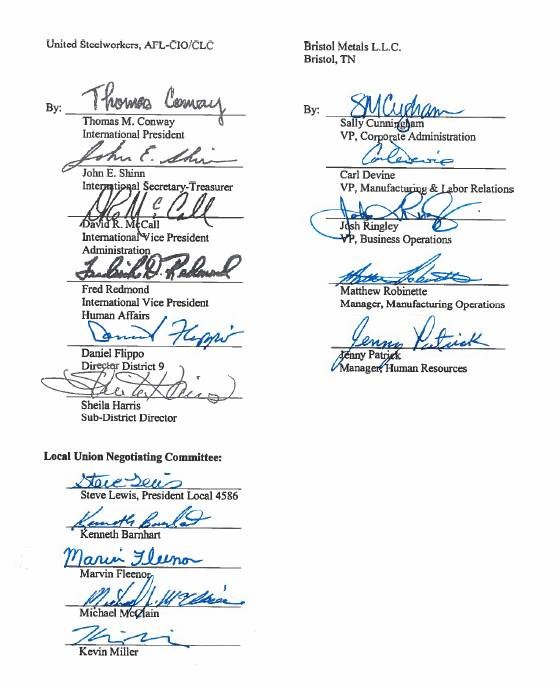 United Steelworkers, AFL-CIO/CLC
By: Thomas Conway
Thomas M. Conway
International President
John E. Shinn
John E. Shinn
International Secretary-Treasurer
D R McCall
David R. McCall
International Vice President
Administration
Frederick D. Redmond
Fred Redmond
International Vice President
Human Affairs
Daniel Flippo
Daniel Flippo
Director District 9
Sheila Harris
Sheila Harris
Sub-District Director
Bristol Metals L.L.C.
Bristol, TN
By:
Sally Cunningham
VP, Corporate Administration
Carl Devine
Carl Devine
VP, Manufacturing & Labor Relations
Josh Ringley
Josh Ringley
VP, Business Operations
Matthew Robinette
Matthew Robinette
Manager, Manufacturing Operations
Jenny Patrick
Jenny Patrick
Manager, Human Resources
Local Union Negotiating Committee:
Steve Lewis
Steve Lewis, President Local 4586
Kenneth Barnhart
Kenneth Barnhart
Marvin Fleenor
Marvin Fleenor
Michael McClain
Kevin Miller